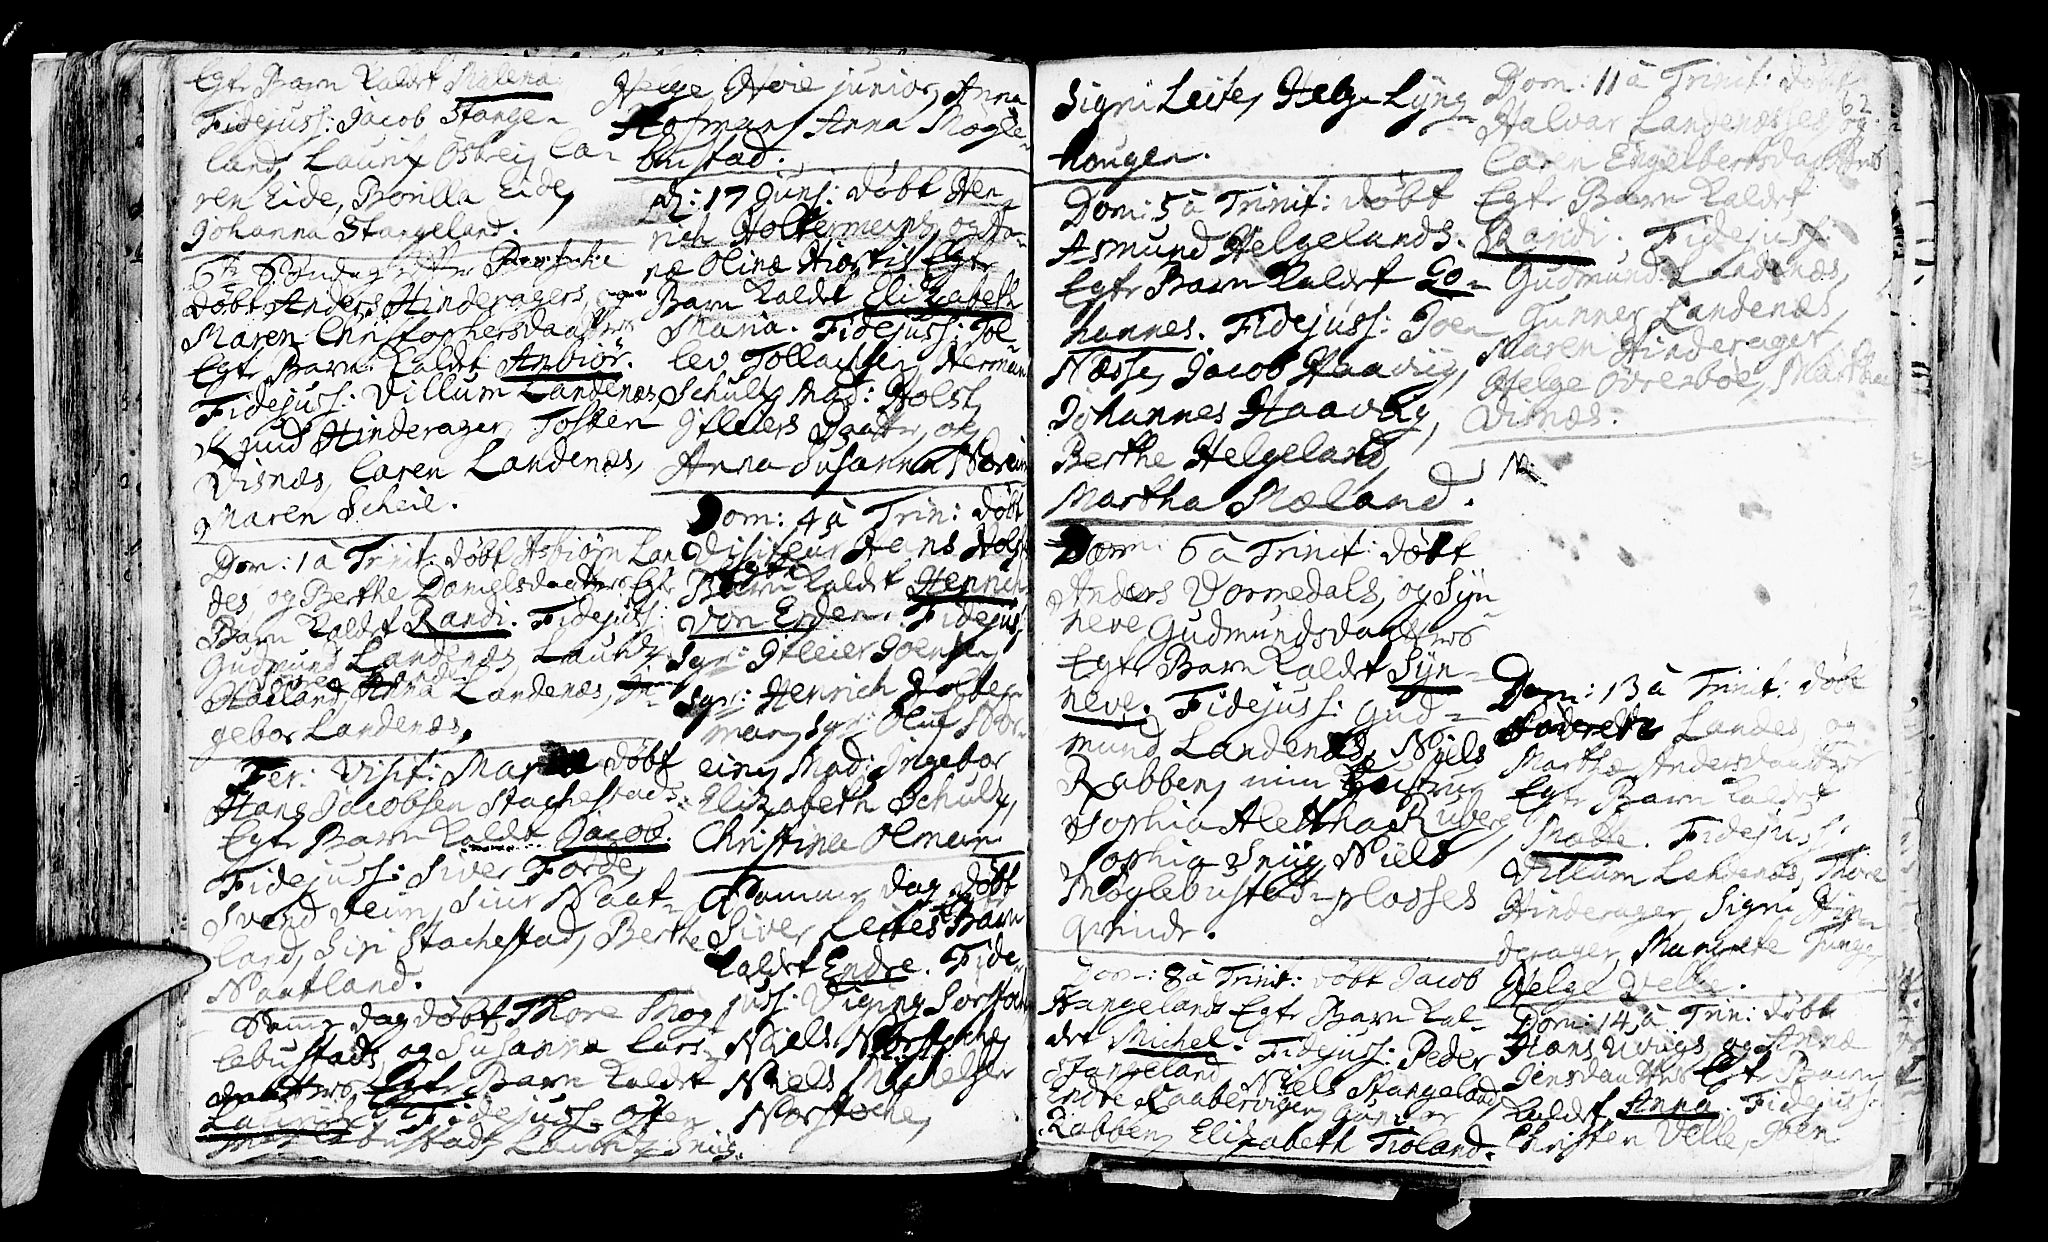 Egte Barn kaldet Malena
Fidejuss: Jacob Stange-
land, Lauritz Østreig, Ca-
ren Eide, Borilla Eide,
Johanna Stangeland.
5te Søndag efter Paaske
døbt Anders Hinderagers, og
Maren Christophersdaatters
Egte Barn kaldet Anbiør.
Fidejuss: Villum Landenæs,
Knud Hinderager, Tosten
Visnæs, Caren Landenæs,
Maren Scheie.
Dom: 1 à Trinit: døbt Asbiørn Lan
des, og Berthe Danielsdaatters Egte
Barn kaldet Randi. Fidejuss:
Gudmund Landenæs, Lauritz
Haaland, Anna Landenæs, In-
gebor Landenæs,
Fer: Visit: Mariæ døbt
Hans Jacobsen Stachestads
Egte Barn kaldet Jacob.
Fidejuss: Siver Førde,
Svend Veim, Siur Naat-
land, Siri Stachestad, Berthe
Naatland.
Samme dag døbt Thore Møg
lebustads og Susanna Lars-
daatters, Egte Barn kaldet
Lauritz. Fidejuss:
Lauritz Sniig.
Helge Hvie junior, Anna
Hofman, Anna Møgle-
bustad.
d: 17 Junj: døbt Hen-
rich Holtermans, og An-
næ Olinæ Hiortis Egte
Barn kaldet Elizabeth
Maria. Fidejuss: Tol-
lev Tollachsen, Herman
Schultz, Mad: Holst,
Itleiers Daatter, og
Anna Susanna Nörein
Dom: 4 à Trin: døbt
Visiteur Hans Holst
Barn kaldet Henrich
von Erden. Fidejuss:
Sgr: Itleier Joensen,
Sgr: Henrich Holter-
man, Sgr: Oluf Nör-
ein, Mad: Ingebor
Elizabeth Schultz,
Christina Olman
Samme dag døbt
Siver Leites Barn
kaldet Endre. Fide-
juss: Viging Sørstoche
Niels Nørstoche,
Niels Michelsen
Nørstoche,
Signi Leite, Helge Lyng-
hougen.
Dom: 5 à Trinit: døbt
Asmund Helgelands.
Egte Barn kaldet Jo-
hannes. Fidejuss: Joen
Næsse, Jacob Haavig,
Johannes Haavig,
Berthe Helgeland,
Martha Mæland.
Dom: 6 à Trinit: døbt
Anders Vormedals, og Syn-
neve Gudmundsdaatters
Egte Barn kaldet Syn-
neve. Fidejuss: Gud-
mund Landenæs, Niels
Rabben, min Hustru
Sophia Alettha Ruberg
Sophia Sniig, Niels
Møglebustad-plasses
qvinde.
Dom: 8 à Trinit: døbt Jacob
Stangelands Egte Barn kal-
det Michel. Fidejuss: Peder
Stangeland, Niels Stangeland,
Endre Raabervigen,
Rabben, Elizabeth Tioland.
62.
Dom: 11 à Trinit: døbt
Halvar Landenæsses, og
Caren Engelbertsdaatters
Egte Barn kaldet
Randi. Fidejuss:
Gudmund Landenæs,
Gunner Landenæs,
Maren Hinderager,
Helge Øvrebøe, Martha
Visnæs.
N:
Dom: 13 à Trinit: døbt
Landes, og
Marthæ Andersdaatter
Egte Barn kaldet
Malle. Fidejuss:
Villum Landenæs, Thore
Hinderager, Signi Hin-
derager, Margrete
Helge Velle.
Dom: 14 à Trin: døbt
Hans Uvigs, og Annæ
Jensdaatters Egte Barn
kaldet Anna. Fidejuss:
Christen Velle, Joen